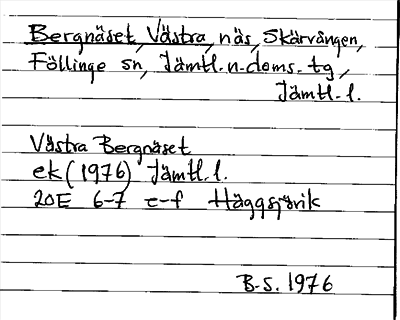 Bergnäset, Västra, näs, Skärvången,
Föllinge sn, Jämtl. n. doms. tg,
Jämtl. l.
Västra Bergnäset
ek (1976) Jämtl. l.
20E 6-7 e-f Häggsjövik
B.S. 1976